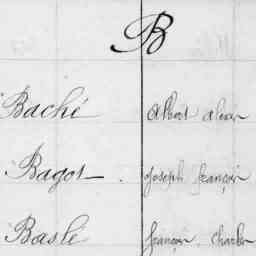 B
Baché Albert
Bagot Joseph françois
Baslé françois, Charles